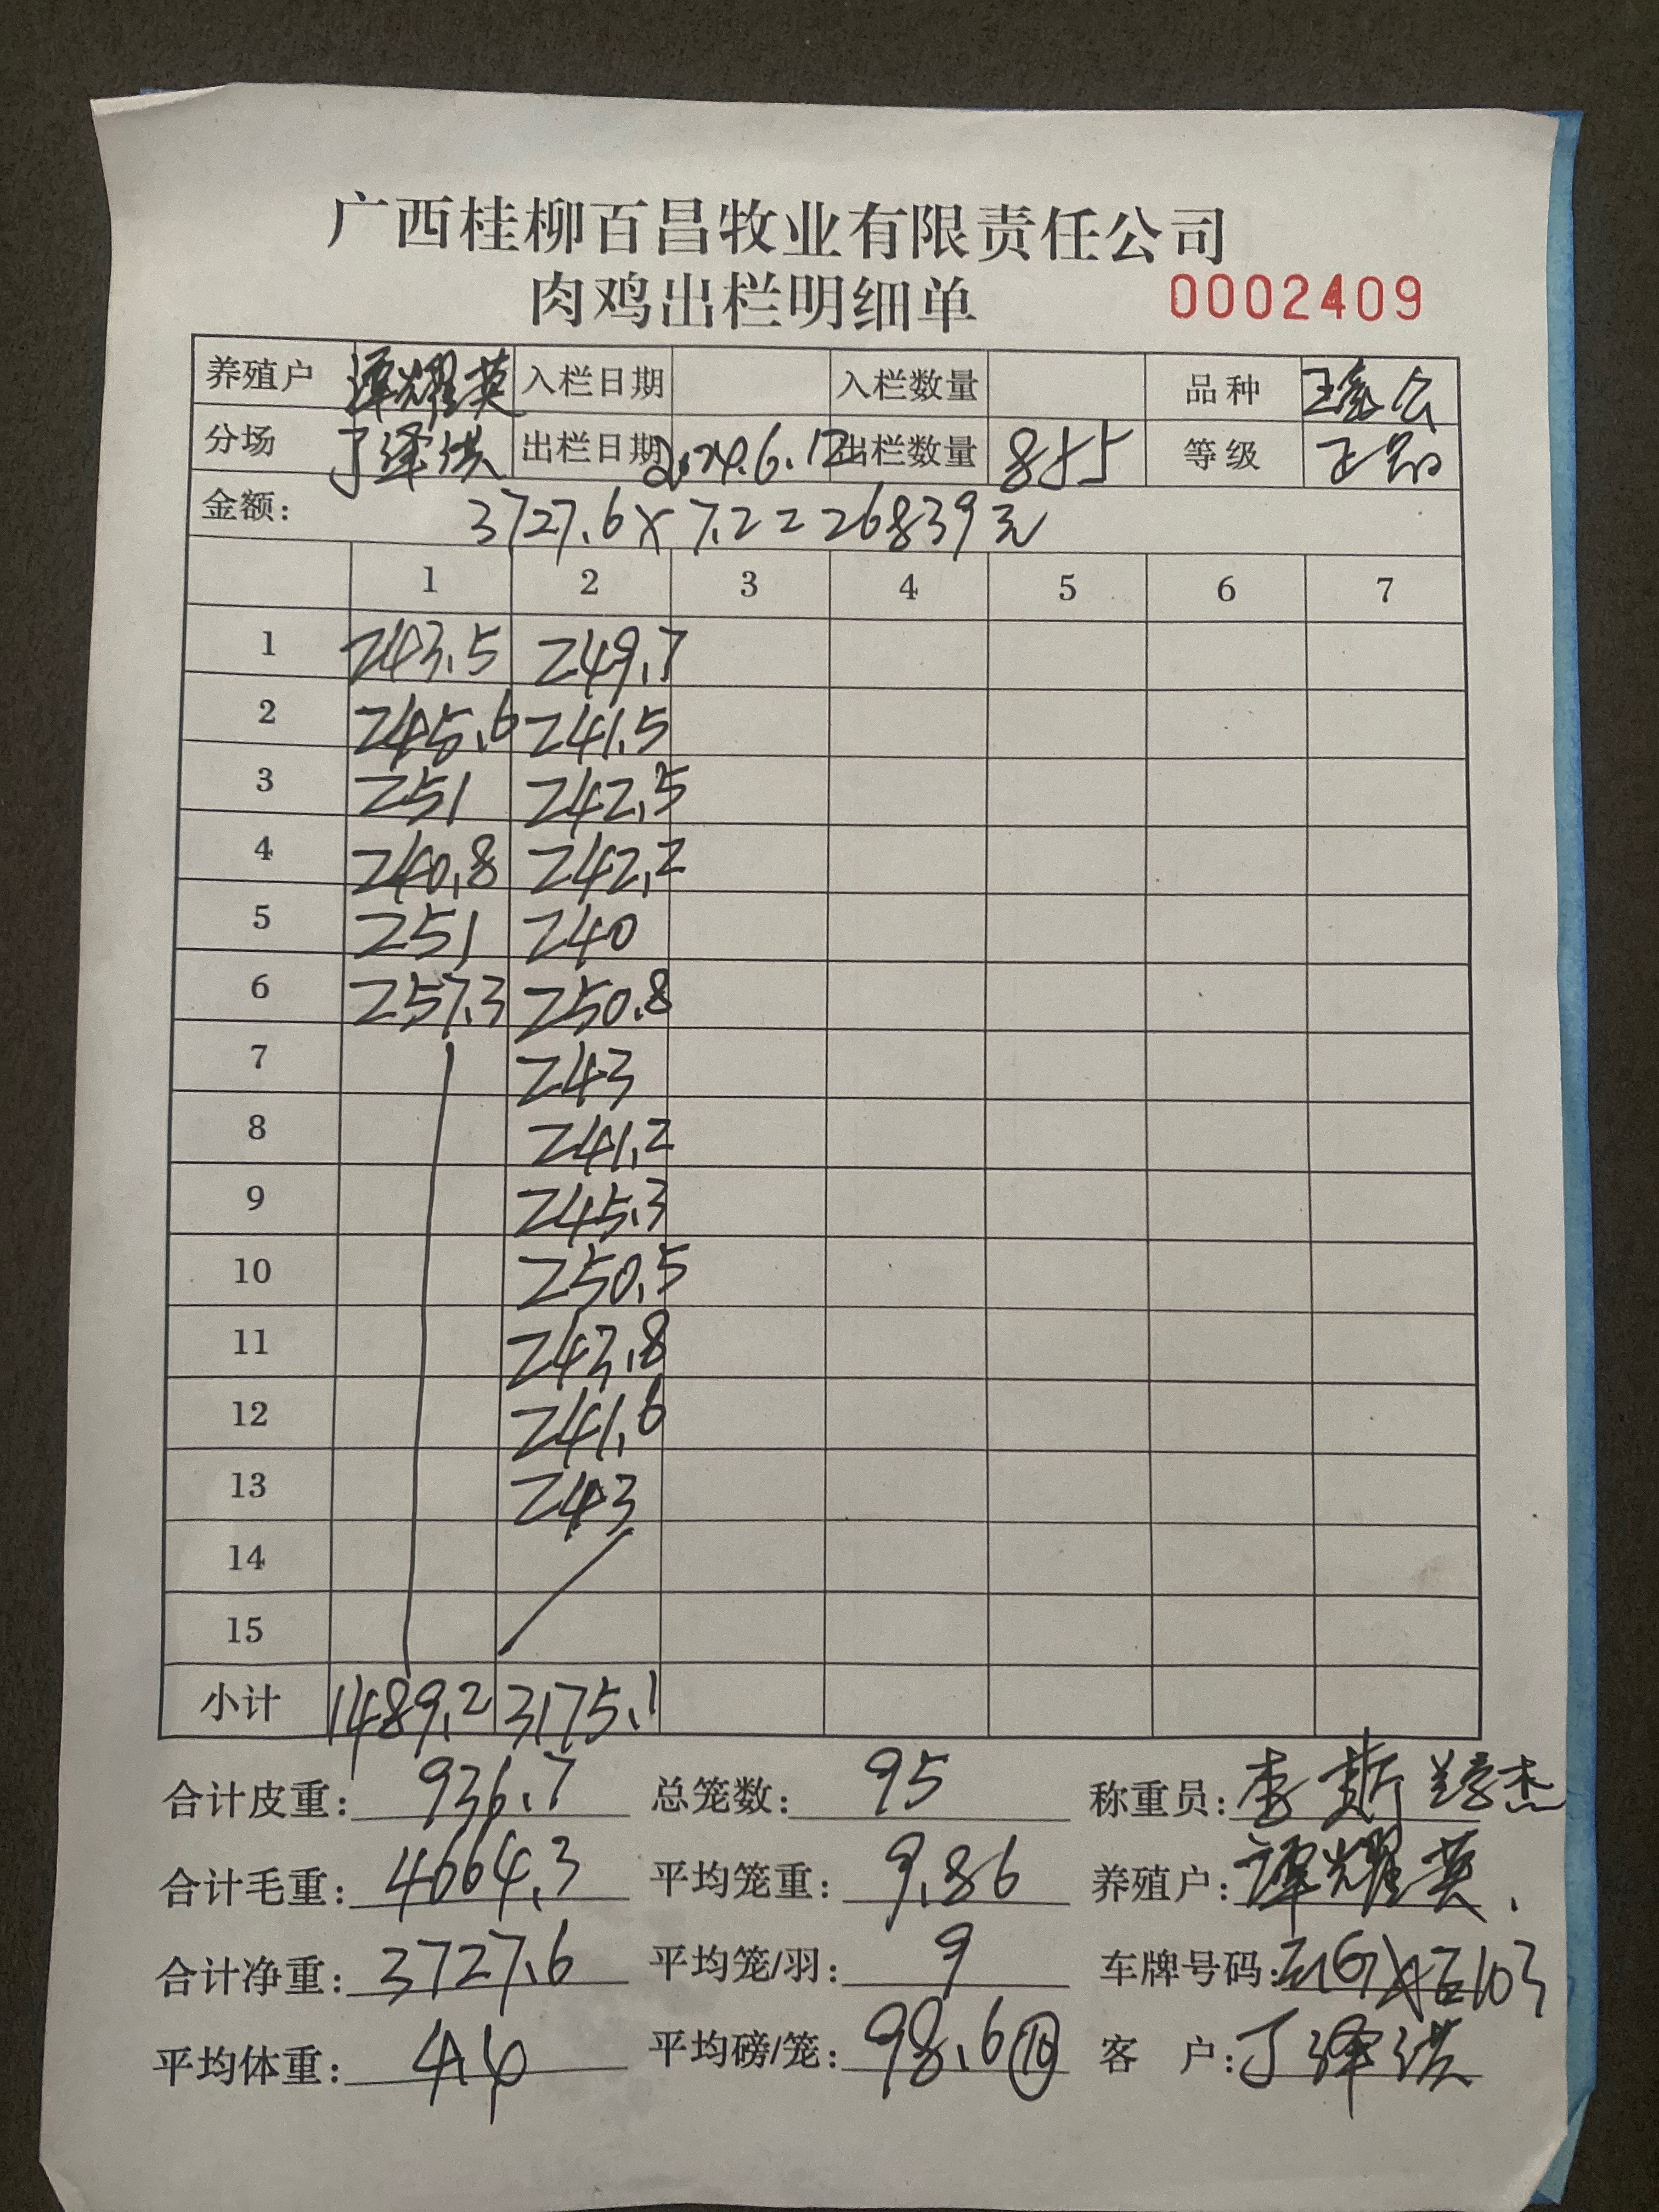 广西桂柳百昌牧业有限责任公司
肉鸡出栏明细单 0002409
养殖户 谭耀英 入栏日期 入栏数量 品种
分场 丁泽洪 出栏日期 2024.6.12 出栏数量 855 等级 正品
金额: 3727.6×7.2=26839元
1 2 3 4 5 6 7
1 243.5 249.7
2 245.6 241.5
3 251 242.5
4 240.8 242.2
5 251 240
6 257.3 250.8
7 243
8 241.2
9 245.3
10 250.5
11 243.8
12 241.6
13 243
14
15
小计 1489.2 3175.1
合计皮重: 936.7 总笼数: 95 称重员: 李
合计毛重: 4664.3 平均笼重: 9.86 养殖户: 谭耀英
合计净重: 3727.6 平均笼/羽: 9 车牌号码:
平均体重: 平均磅/笼: 98.6 ⑩ 客 户: 丁泽洪